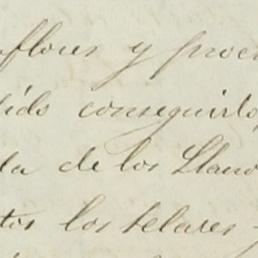 flores y proc
dido conseguirlo,
da de los Llano
tos los telares y